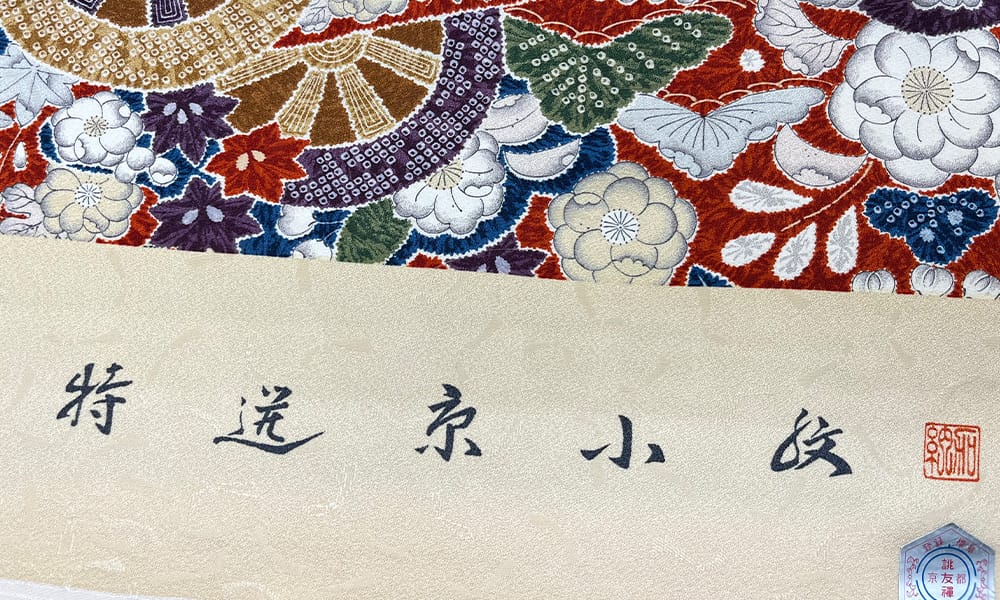 特選京小紋
京都
誂友禅